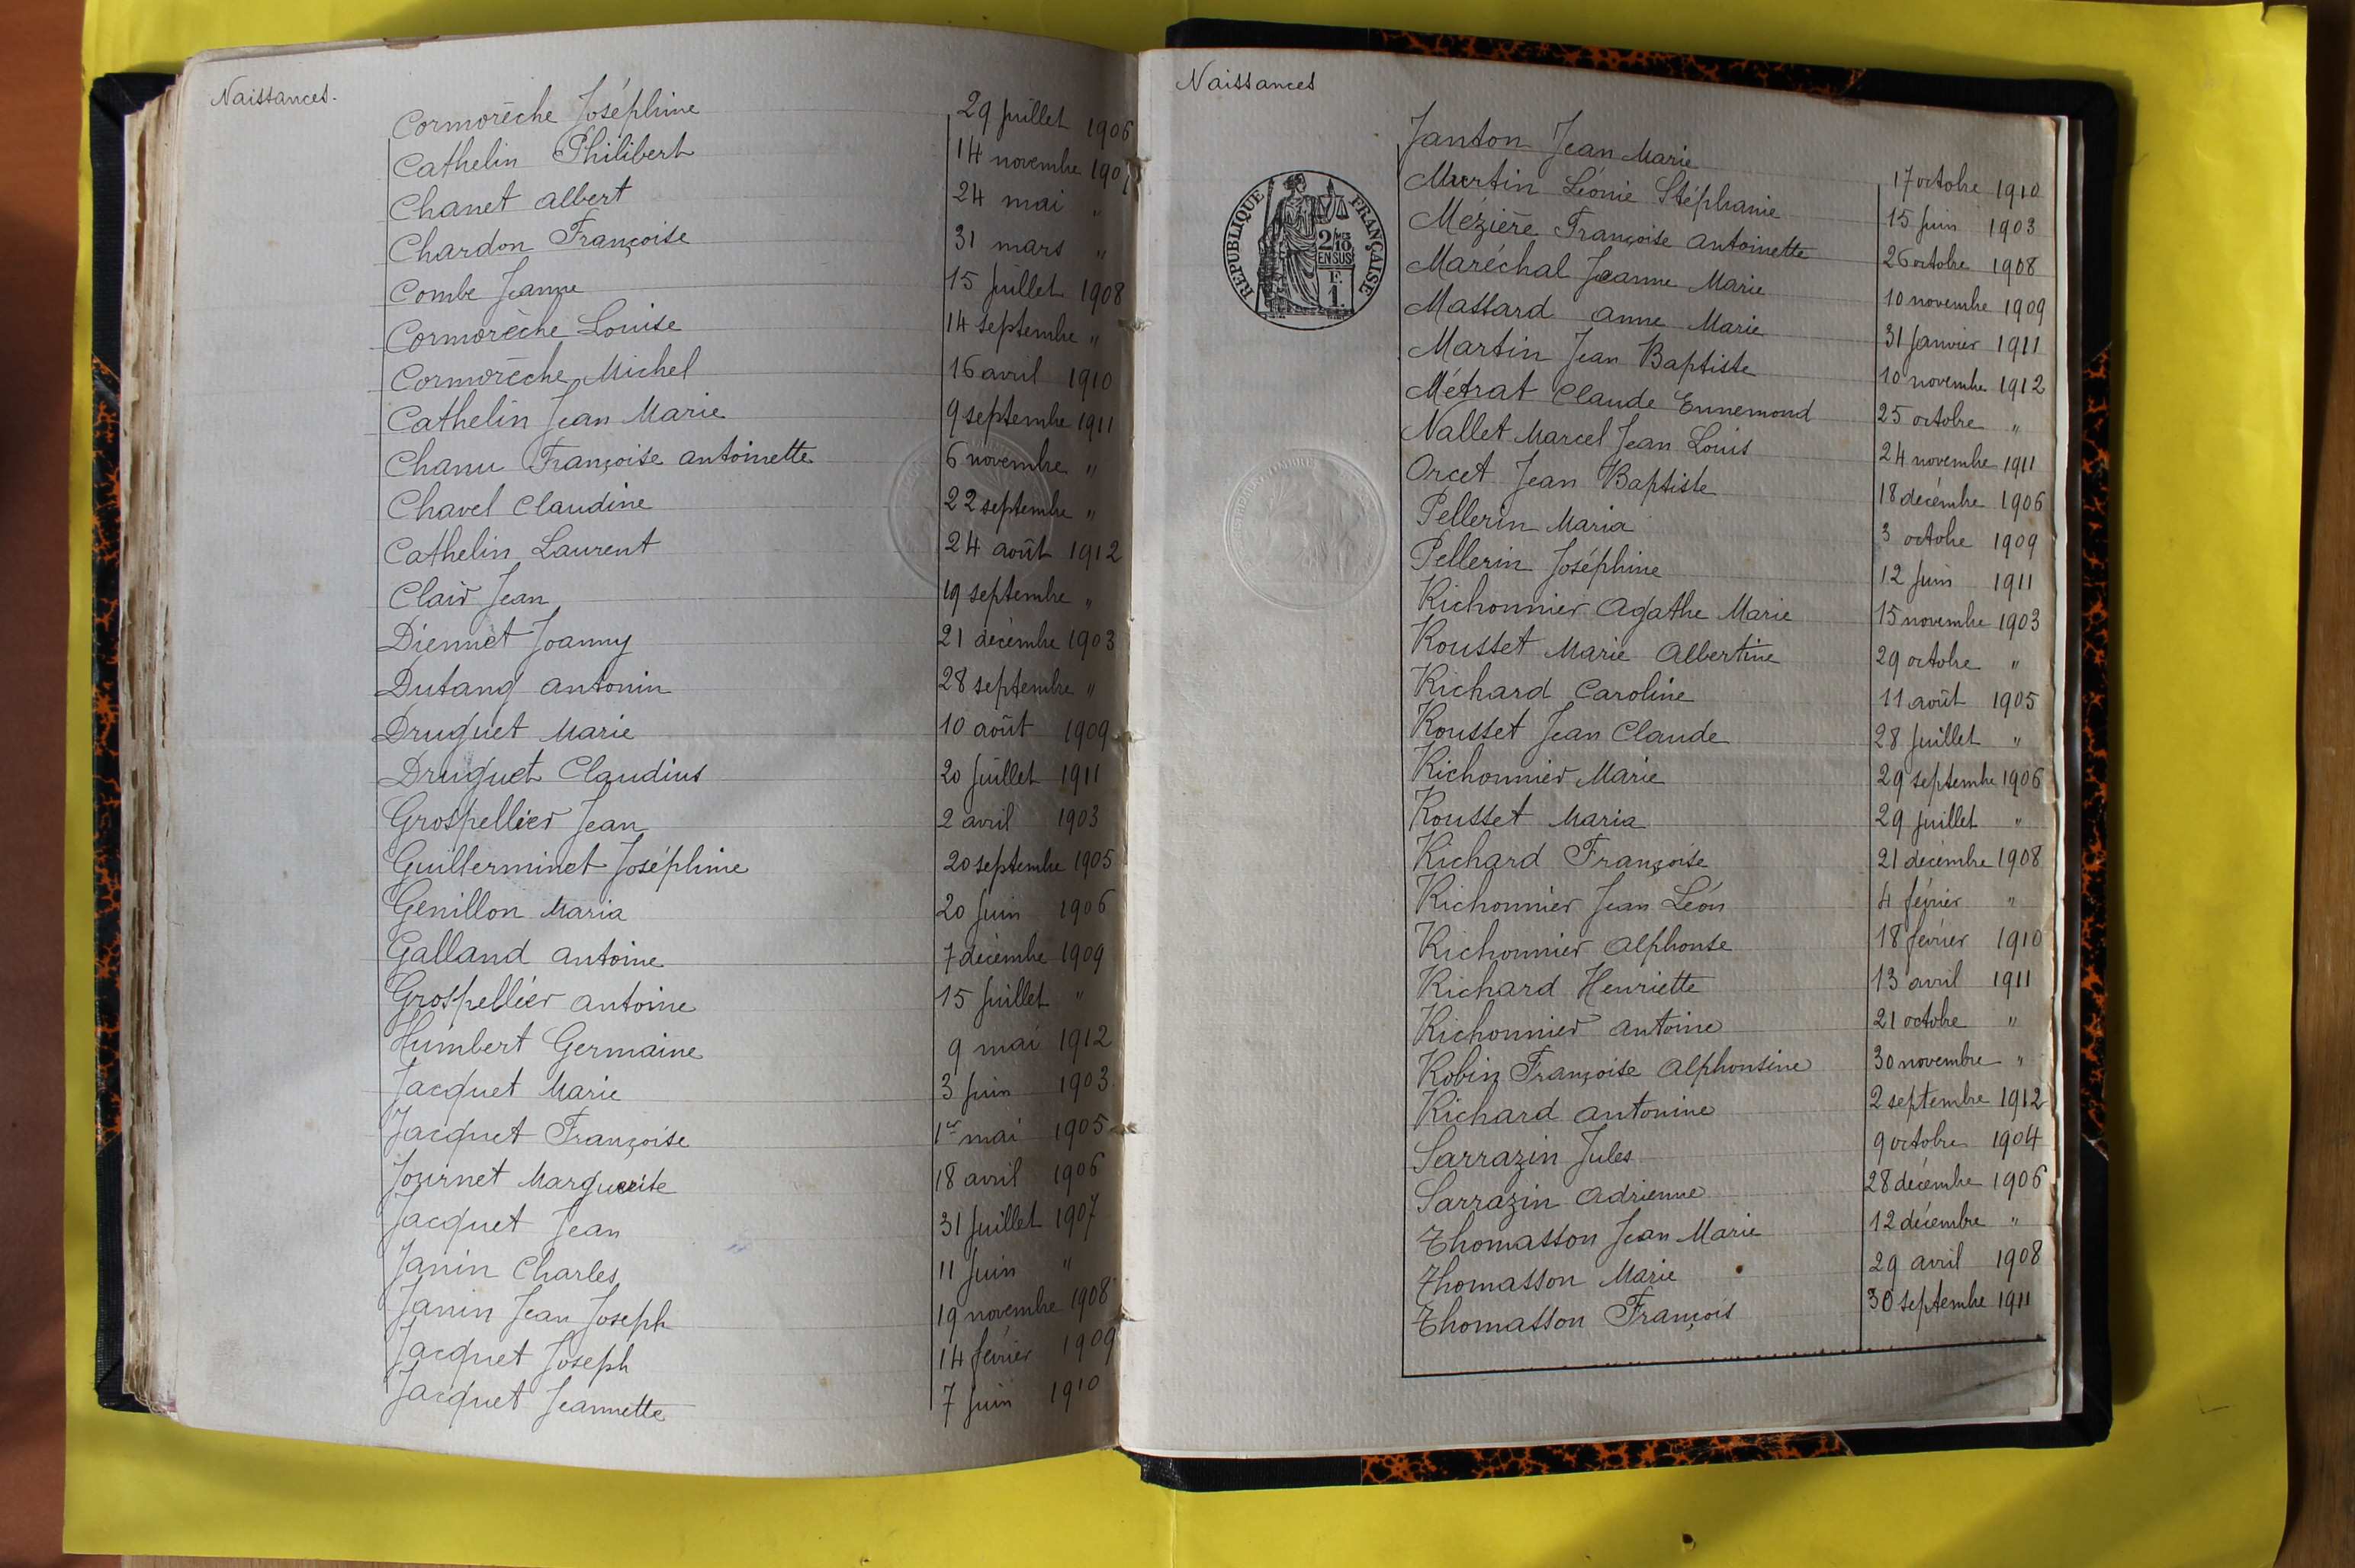 Naissances.
Cormorèche Joséphine 29 juillet 1906
Cathelin Philibert 14 novembre 1907
Chanet albert 24 mai "
Chardon Françoise 31 mars "
Combe Jeanne 15 juillet 1908
Cormorèche Louise 14 septembre "
Cormorèche Michel 16 avril 1910
Cathelin Jean Marie 9 septembre 1911
Chanu Françoise antoinette 6 novembre "
Chavel Claudine 22 septembre "
Cathelin Laurent 24 août 1912
Clair Jean 19 septembre "
Diennet Joanny 21 décembre 1903
Dutang antonin 28 septembre "
Druguet Marie 10 août 1909
Druguet Claudius 20 juillet 1911
Grospellier Jean 2 avril 1903
Guillerminet Joséphine 20 septembre 1905
Genillon Maria 20 juin 1906
Galland antoine 7 décembre 1909
Grospellier antoine 15 juillet "
Humbert Germaine 9 mai 1912
Jacquet Marie 3 juin 1903
Jacquet Françoise 1er mai 1905
Journet Marguerite 18 avril 1906
Jacquet Jean 31 juillet 1907
Janin Charles 11 juin "
Janin Jean Joseph 19 novembre 1908
Jacquet Joseph 14 février 1909
Jacquet Jeannette 7 juin 1910
Naissances
REPUBLIQUE FRANÇAISE
2/10 mes
EN SUS
F.
1.
Janton Jean Marie 17 octobre 1910
Martin Léonie Stéphanie 15 juin 1903
Mézière Françoise antoinette 26 octobre 1908
Maréchal Jeanne Marie 10 novembre 1909
Massard anne Marie 31 janvier 1911
Martin Jean Baptiste 10 novembre 1912
Métrat Claude Ennemond 25 octobre "
Nallet Marcel Jean Louis 24 novembre 1911
Orcet Jean Baptiste 18 décembre 1906
Pellerin Maria 3 octobre 1909
Pellerin Joséphine 12 juin 1911
Richonnier Agathe Marie 15 novembre 1903
Rousset Marie Albertine 29 octobre "
Richard Caroline 11 août 1905
Rousset Jean Claude 28 juillet "
Richonnier Marie 29 septembre 1906
Rousset Maria 29 juillet "
Richard Françoise 21 décembre 1908
Richonnier Jean Léon 4 février "
Richonnier Alphonse 18 février 1910
Richard Henriette 13 avril 1911
Richonnier antoine 21 octobre "
Robin Françoise Alphonsine 30 novembre "
Richard antonine 2 septembre 1912
Sarrazin Jules 9 octobre 1904
Sarrazin Adrienne 28 décembre 1906
Thomasson Jean Marie 12 décembre "
Thomasson Marie 29 avril 1908
Thomasson François 30 septembre 1911